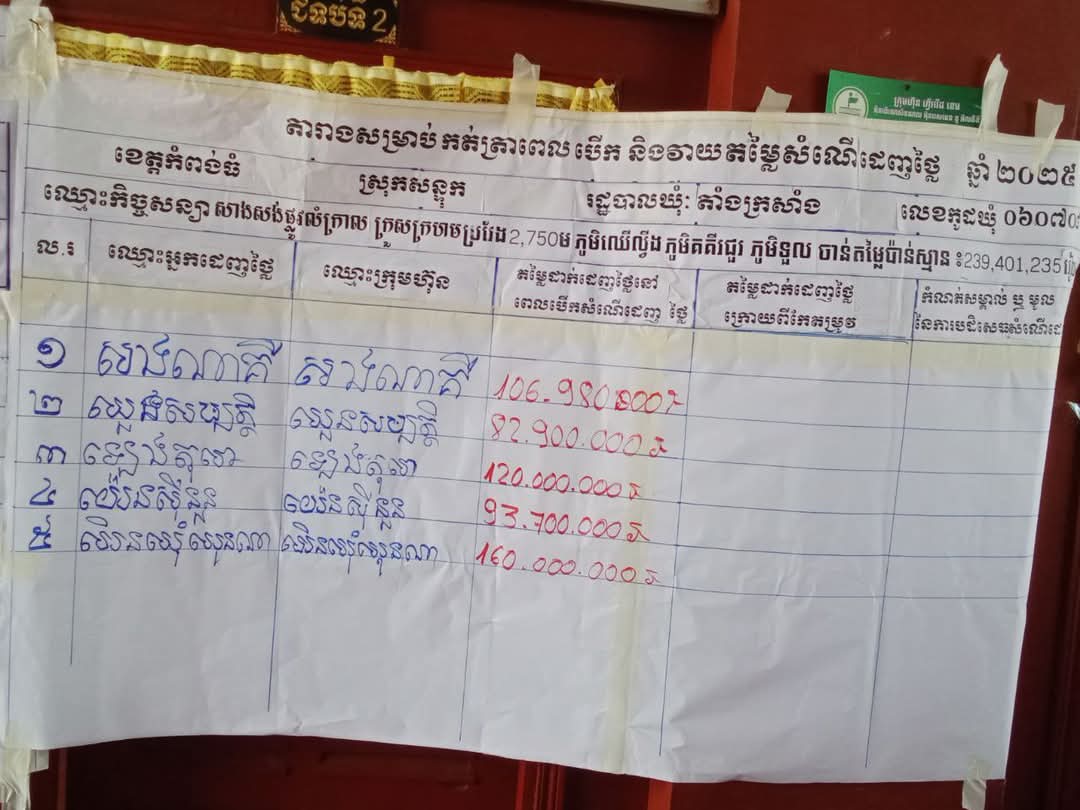 ជួបទី 2
ក្រុមហ៊ុន
តារាងសម្រាប់ កត់ត្រាពេល បើក និងវាយតម្លៃសំណើដេញថ្លៃ ឆ្នាំ ២០២៥
ខេត្តកំពង់ធំ ស្រុកសន្ទុក រដ្ឋបាលឃុំ: តាំងក្រសាំង លេខកូដឃុំ ០៦០៧០
ឈ្មោះកិច្ចសន្យា សាងសង់ផ្លូវលំក្រាល គ្រួសក្រហមប្រវែង 2,750ម ភូមិឈើល្វីង ភូមិគគីរជួរ ភូមិទួល ចាន់ តម្លៃប៉ាន់ស្មាន ៖239,401,235
ល.រ ឈ្មោះអ្នកដេញថ្លៃ ឈ្មោះក្រុមហ៊ុន តម្លៃដាក់ដេញថ្លៃនៅ តម្លៃដាក់ដេញថ្លៃ កំណត់សម្គាល់ ឬ មូល
ពេលបើកសំណើដេញ ថ្លៃ ក្រោយពីកែតម្រូវ នៃការបដិសេធសំណើដេ
១ សាងណាគី សាងណាគី 106.980 000៛
២ ឃួនសម្បត្តិ ឃួនសម្បត្តិ 82.900.000៛
៣ ឡេងតុហេ ឡេងតុហេ 120.000.000៛
៤ 93.700.000៛
៥ 160.000.000៛